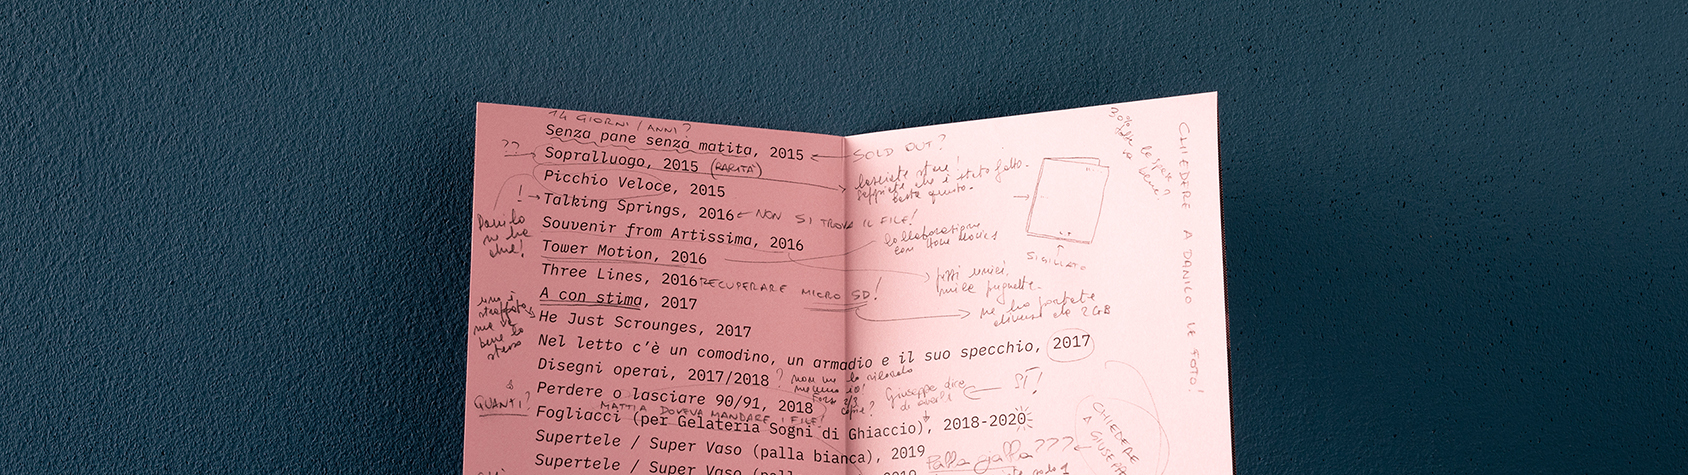 14 GIORNI / ANNI?
Senza pane senza matita, 2015
SOLD OUT?
??
Sopralluogo, 2015 (RARITÀ)
lasciate stare!
sappiate che è stato fatto.
basta questo.
Picchio Veloce, 2015
!
Talking Springs, 2016
NON SI TROVA IL FILE!
Souvenir from Artissima, 2016
collaborazione
con
Tower Motion, 2016
SIGILLATO
pezzi unici,
Three Lines, 2016
RECUPERARE MICRO SD!
A con stima, 2017
ne ho portate
diverse da 2 GB
He Just Scrounges, 2017
bene lo
stesso
Nel letto c'è un comodino, un armadio e il suo specchio, 2017
Disegni operai, 2017/2018
?
Perdere o lasciare 90/91, 2018
Giuseppe dice
di averli
SÌ!
QUANTI?
MATTIA DOVEVA MANDARE I FILE!
Fogliacci (per Gelateria Sogni di Ghiaccio), 2018-2020
Supertele / Super Vaso (palla bianca), 2019
Palla gialla???
CHIEDERE
A GIUSEPPE
Supertele / Super Vaso
CHIEDERE A DANILO LE FOTO!